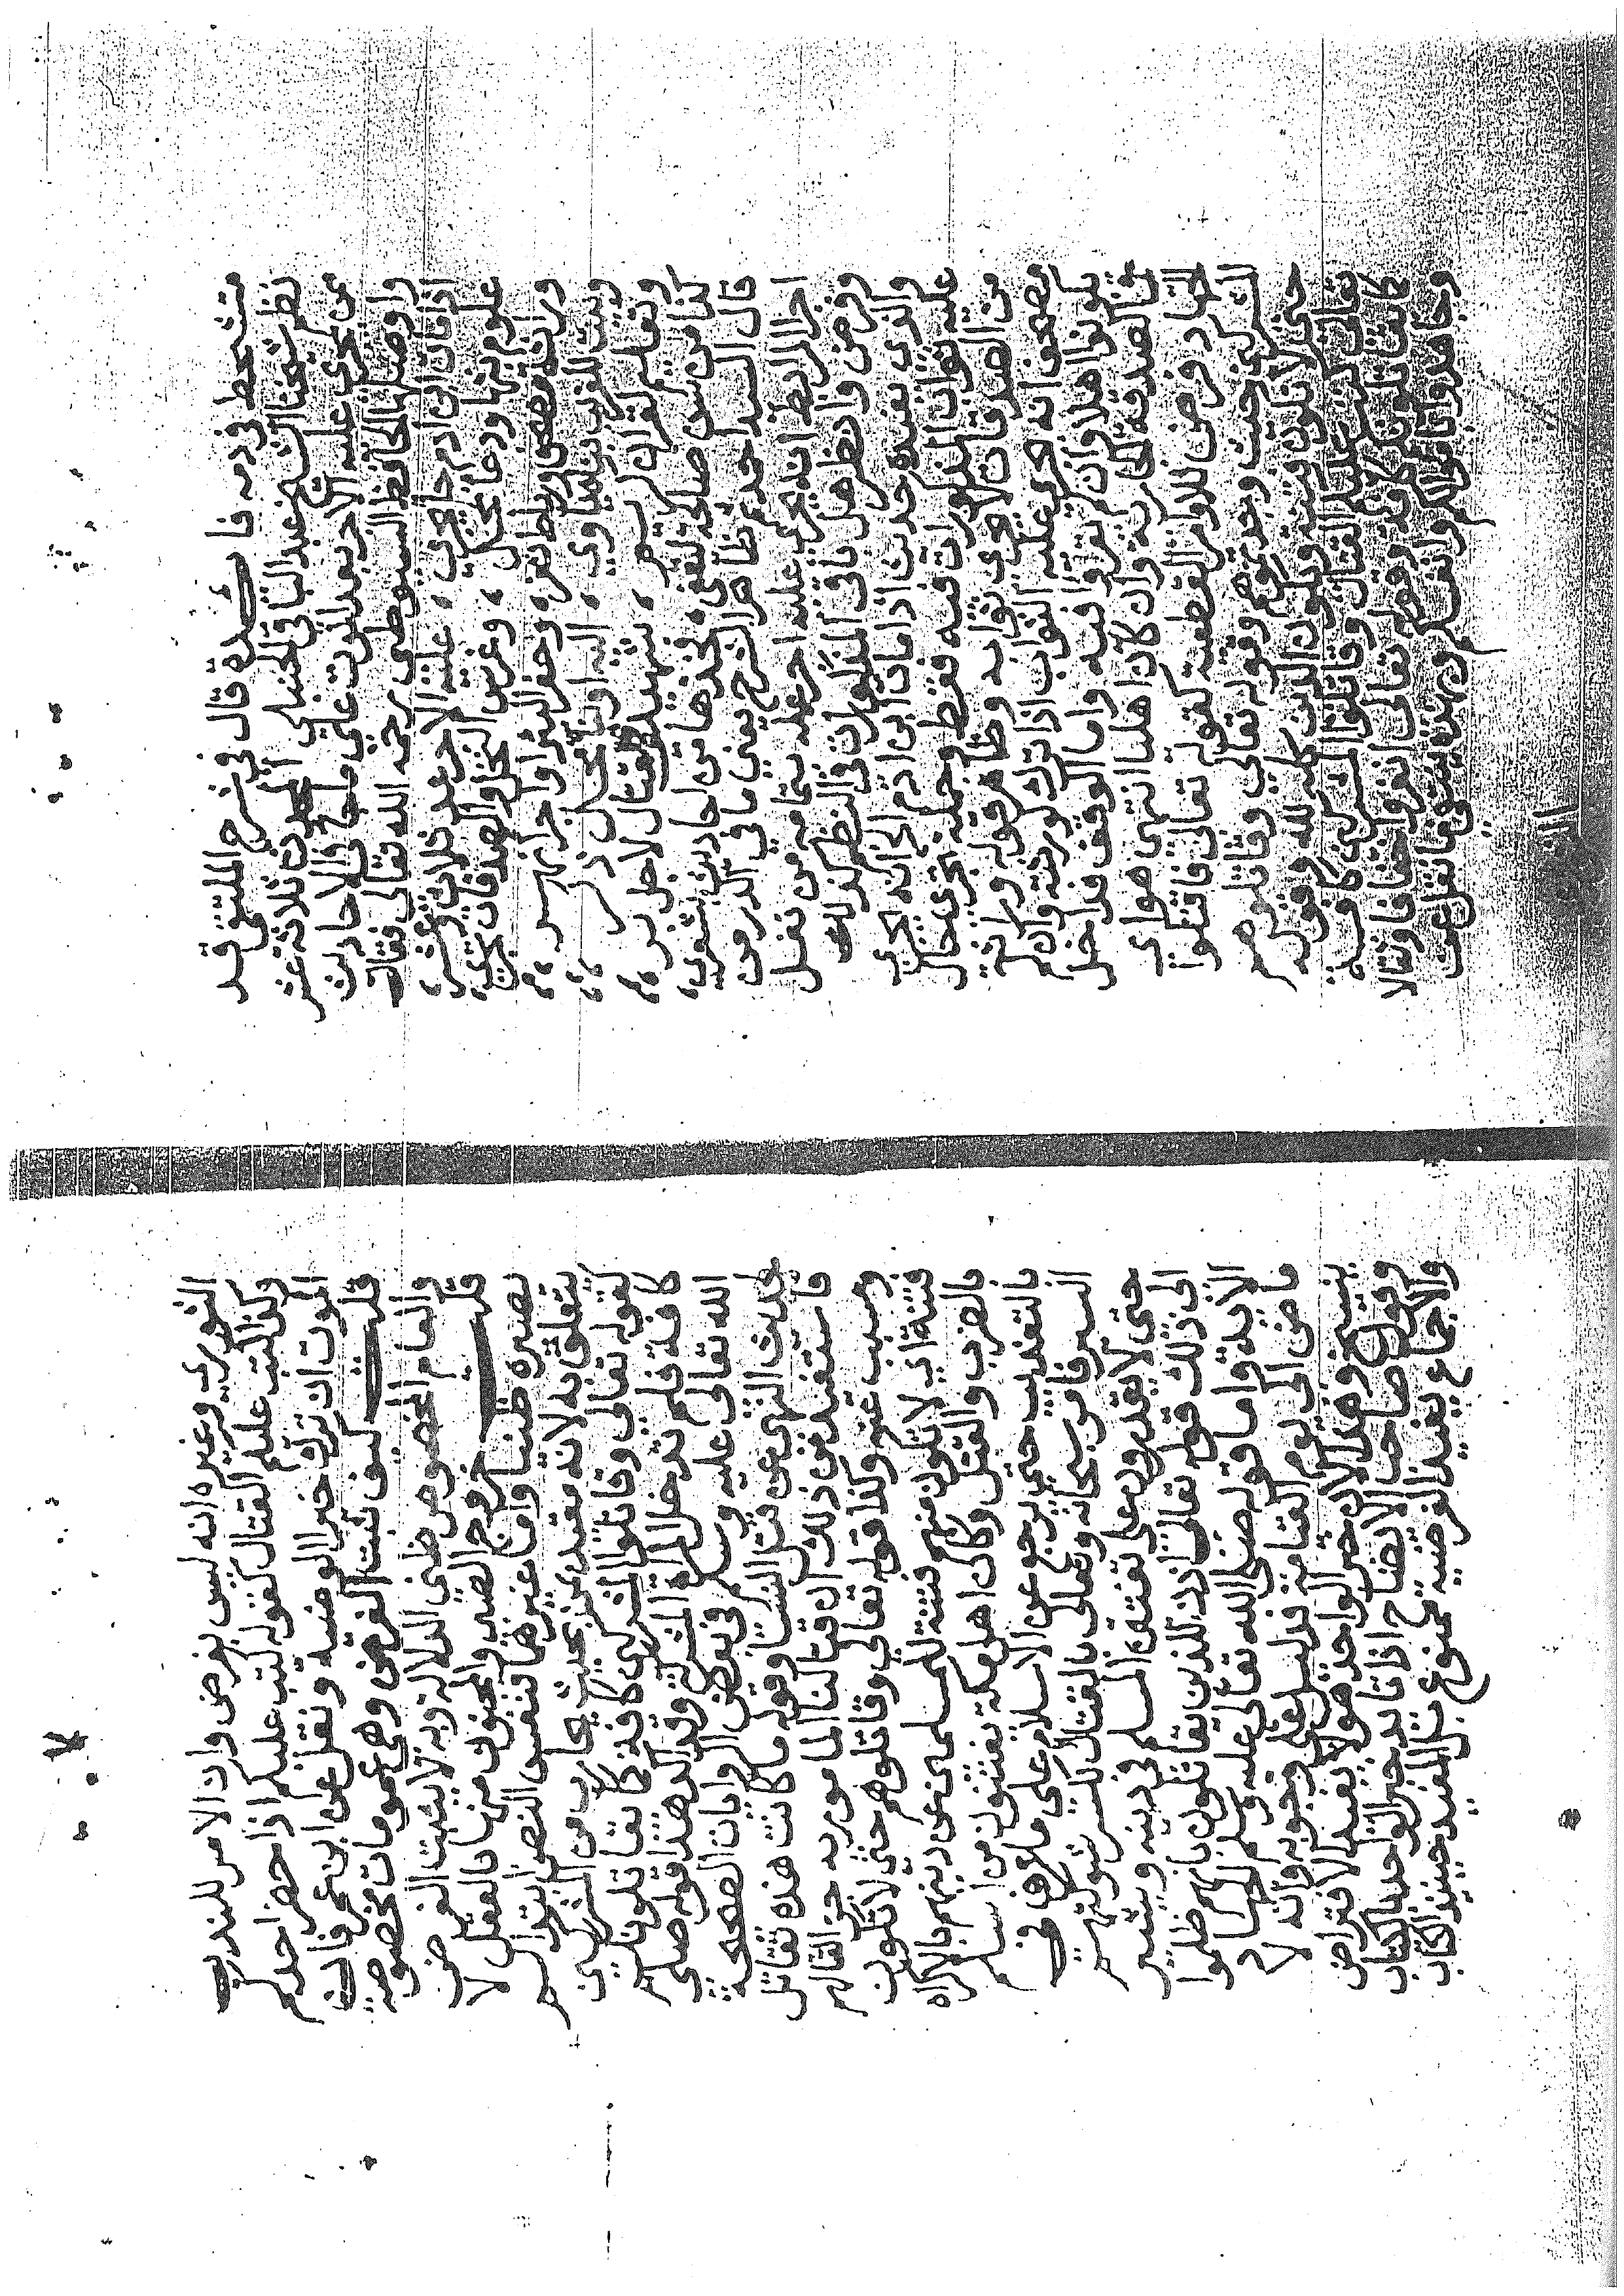 متشحط في دمه فائدة قال في شرح الملتقى قد
نظم شيخنا الشيخ عبد الباقي الحنبلي المحدث ثلاثة عشر
من يجري عليه الاجر بعد الموت على ما جا في الاحاديث
واوصلها الحافظ السيوطي رحمه الله تعالى فقال
اذا مات ابن ادم جا يجري ، عليه الاجر عد ثلاث عشر ،
علوم بثها ودعا نجل ، وغرس النخل والصدقات تجري ،
وراثة مصحف ورباط ثغر ، وحفر البئر او اجراء نهر ،
وبيت للغريب بناه ياوي ، اليه او بناء محل ذكر ،
وتعليم لقران كريم ، شهيد للقتال لاجل بر ،
كذا من سن صالحة ليقفى ، فخذها من احاديث بشعر ،
قال السيد احمد ظاهر الشرح يعني ما في الدر من
اجرا الرابط انه يجري عليه اجر عمله بتمامه من نفل
وفرض وانظر هل باقي المذكورات في النظم كذلك
والذي يفيده حديث اذا مات ابن ادم الخ انه يجري
عليه ثواب المذكورات فيه فقط وجملة تجري حال
من الصدقات لا تجري ثوابه وظاهر قوله وراثة
مصحف انه يجري عليه الثواب اذا ترك لورثته وان لم
يكونوا اهلا وان لم يقروا فيه واما الوقف فداخل
في الصدقة الجارية وان كان اهلها انتهى هو اي
الجهاد فرض للاوامر القطعية لقوله تعالى فاقتلوا
المشركين حيث وجدتموهم وقوله تعالى وقاتلوهم
حتى لا تكون فتنة ويكون الدين كله لله وقوله
تعالى كتب عليكم القتال وقاتلوا المشركين كافة
كما يقاتلونكم كافة وقوله تعالى انفروا خفافا وثقالا
وجاهدوا باموالكم وانفسكم وبهذه ينتفي ما نقل عن
الثوري
الثوري وغيره انه ليس بفرض وان الامر للندب
وكذا كتب عليكم القتال كقوله كتب عليكم اذا حضر احدكم
الموت ان ترك خيرا الوصية ونقل عن ابن عمر فان
قلت كيف تثبت الفرض وهي عمومات مخصوصة
والعام المخصوص ظني الدلالة وبه لا يثبت الفرض
قلت خروج الصبي والمجنون منها بالعقل لا
يصيره ظنيا واما غيرهما فنفس النص ابتدا لم
يتعلق به لانه مقيد بمن بحيث يحارب من المشركين
لقوله تعالى وقاتلوا المشركين كافة كما يقاتلونكم
كافة فلم تدخل المراة المشركة وقد اكد هذا قوله صلى
الله تعالى عليه وسلم في بعض الروايات الصحيحة
حديث النهي عن قتل النسا وقوله ما كانت هذه تقاتل
فاستفيد من ذلك ان قتالنا المامور به جزا لقتالهم
ومسبب عنه وكذا قوله تعالى وقاتلوهم حتى لا تكون
فتنة اي لا تكون منهم فتنة للمسلمين عن دينهم بالاكراه
بالضرب والقتل وكان اهل مكة يفتنون من اسلم
بالتعذيب حتى يرجع عن الاسلام على ما عرف في
السير فامر سبحانه وتعالى بالقتال لكسر شوكتهم
حتى لا يقدرون على تفتين المسلم في دينه ويشير
الى ذلك قوله تعالى اذن للذين يقاتلون بانهم ظلموا
الاية واما قوله صلى الله تعالى عليه وسلم الجهاد
ماض الى يوم القيامة فدليل على وجوبه وانه لا
ينسخ وهذا لان خبر الواحد هو لا يفيد الافتراض
وقول صاحب الايضاح اذا تايد خبر الواحد بالكتاب
والاجماع يفيد الفرضية ممنوع بل المفيد حينئذ الكتاب